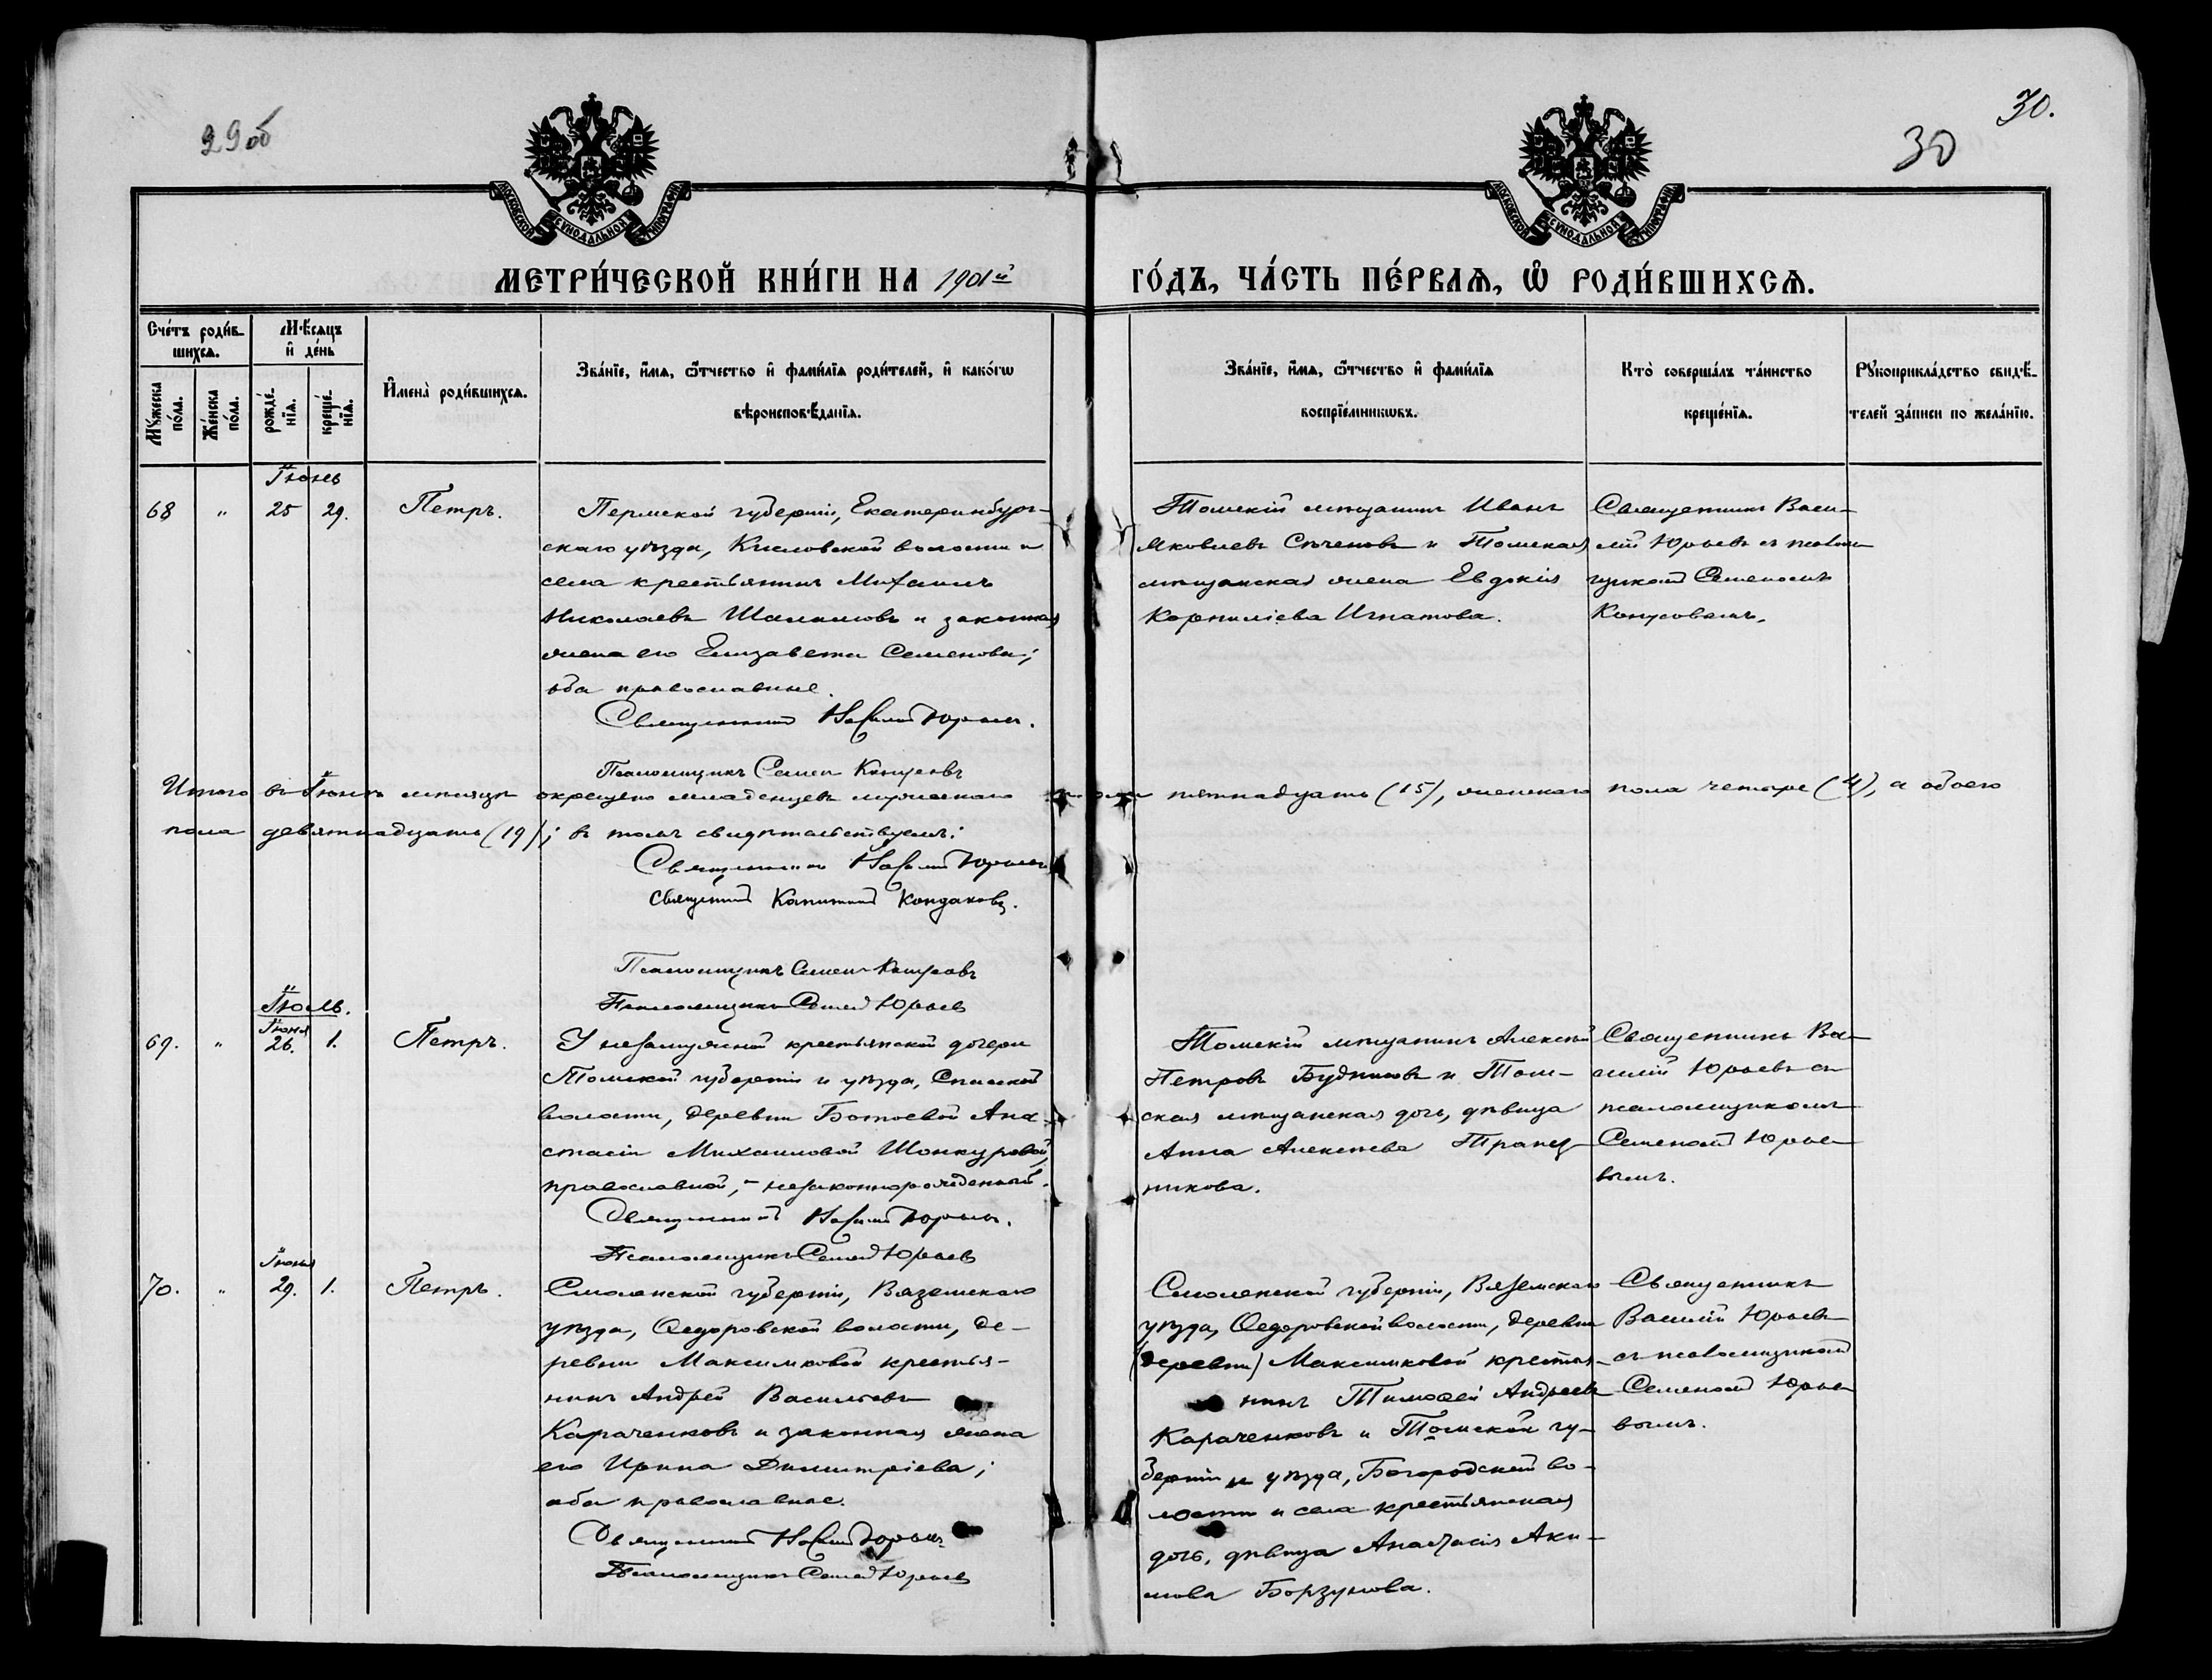 29об
30.
30
МОСКОВСКОЙ СѴНОДАЛЬНОЙ ТИПОГРАФІИ
МОСКОВСКОЙ СѴНОДАЛЬНОЙ ТИПОГРАФІИ
МЕТРИ́ЧЕСКОЙ КНИ́ГИ НА 1901й
ГО́ДЪ, ЧА́СТЬ ПЕ́РВАѦ, Ѡ҆ РОДИ́ВШИХСѦ.
Сче́тъ роди́в-
шихсѧ.
Мѣ́сѧцъ
и҆ де́нь
Мꙋ́жеска по́ла.
Же́нска по́ла.
рожде́-
нїѧ.
креще́-
нїѧ.
И҆мена̀ роди́вшихсѧ.
Зва́нїе, и҆́мѧ, ѻ҆́тчество и҆ фами́лїѧ роди́телей, и҆ како́гѡ
вѣроисповѣ́данїѧ.
Зва́нїе, и҆́мѧ, ѻ҆́тчество и҆ фами́лїѧ
воспрїе́мникѡвъ.
Кто̀ соверша́лъ та́инство
креще́нїѧ.
Рꙋкоприкла́дство свидѣ́-
телей за́писи по жела́нїю.
Іюнь
68 " 25 29. Петръ.
Пермской губерніи, Екатеринбург-
скаго уѣзда, Кисловской волости и
села крестьянинъ Михаилъ
Николаевъ Шалимовъ и законная
жена его Елизавета Семенова;
оба православные.
Священникъ Василій Юрьевъ.
Псаломщикъ Семен Конусовъ
Томскій мѣщанинъ Иванъ
Яковлевъ Сѣченовъ и Томская
мѣщанская жена Евдокія
Корниліева Игнатова.
Священникъ Васи-
лій Юрьевъ съ псалом-
щикомъ Семеномъ
Конусовымъ.
Итого въ Іюнѣ мѣсяцѣ окрещено младенцевъ мужескаго пола пятнадцать (15), женскаго пола четыре (4), а обоего
пола девятнадцать (19); въ томъ свидѣтельствуемъ:
Священникъ Василій Юрьевъ
Священникъ Капитонъ Кондаковъ.
Псаломщикъ Семен Конусовъ
Псаломщикъ Семен Юрьевъ
Іюль.
Іюня
69. " 26. 1. Петръ.
У незамужней крестьянской дочери
Томской губерніи и уѣзда, Спасской
волости, деревни Батоевой Ана-
стасіи Михаиловой Шонкуровой,
православной, – незаконнорожденный.
Священникъ Василій Юрьевъ.
Псаломщикъ Семен Юрьевъ
Томскій мѣщанинъ Алексѣй
Петровъ Будниковъ и Том-
ская мѣщанская дочь, дѣвица
Анна Алексѣева Трапез-
никова.
Священникъ Ва-
силій Юрьевъ съ
псаломщикомъ
Семеномъ Юрье-
вымъ.
Іюня
70. " 29. 1. Петръ.
Смоленской губерніи, Вяземскаго
уѣзда, Ѳедоровской волости, де-
ревни Максимковой крестья-
нинъ Андрей Васильевъ
Караченковъ и законная жена
его Ирина Димитріева;
оба православные.
Священникъ Василій Юрьевъ.
Псаломщикъ Семен Юрьевъ
Смоленской губерніи, Вяземскаго
уѣзда, Ѳедоровской волости, деревни
(деревни) Максимковой крестья-
нинъ Тимоѳей Андреевъ
Караченковъ и Томской гу-
берніи и уѣзда, Богородской во-
лости и села крестьянская
дочь, дѣвица Анастасія Аки-
мова Борзунова.
Священникъ
Василій Юрьевъ
съ псаломщикомъ
Семеномъ Юрье-
вымъ.